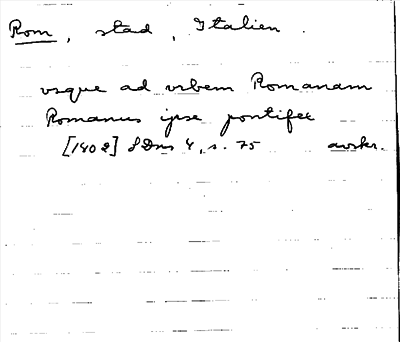 Rom, stad, Italien.
vsque ad vrbem Romanam
Romanus ipse pontifex
[1402] SDns 4, s. 75 avskr.